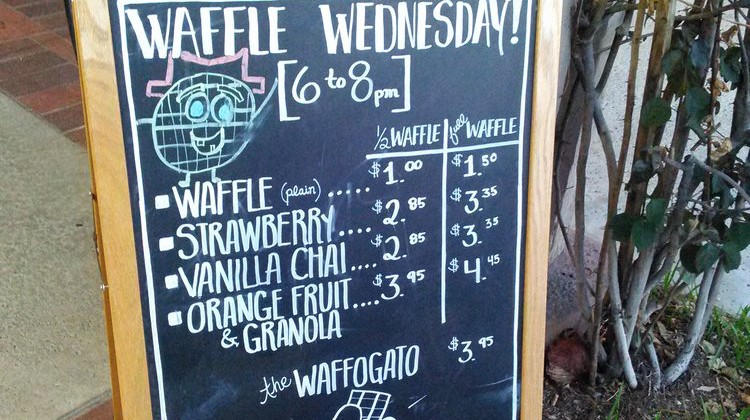 WAFFLE WEDNESDAY!
[6 to 8 pm]
½ WAFFLE full WAFFLE
WAFFLE (plain) ..... $1.00 $1.50
STRAWBERRY.... $2.85 $3.35
VANILLA CHAI.... $2.85 $3.35
ORANGE FRUIT.... $3.95 $4.45
& GRANOLA
the WAFFOGATO $3.95